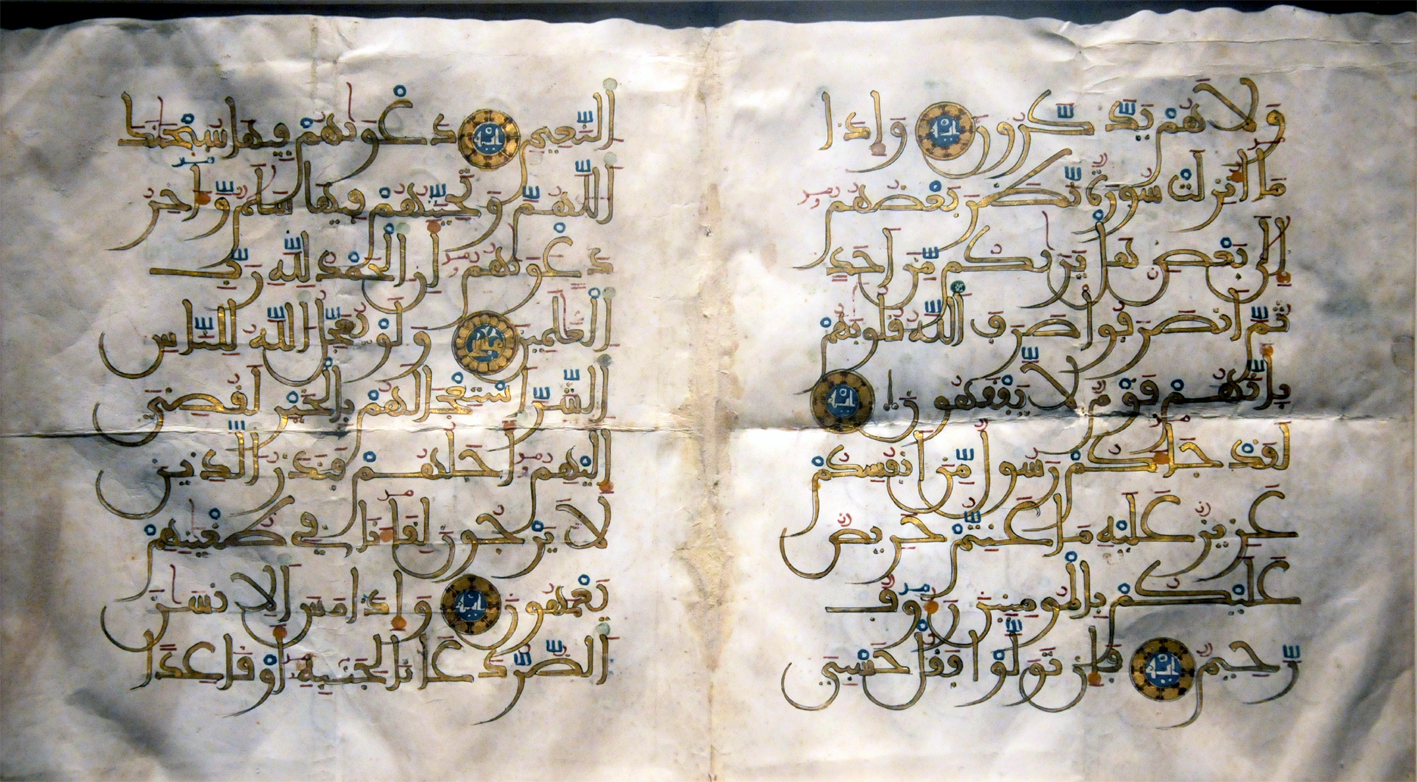 وَلَا هُمْ يَذَّكَّرُونَ اية وَإِذَا
مَا أُنزِلَتْ سُورَةٌ نَّظَرَ بَعْضُهُمْ
إِلَىٰ بَعْضٍ هَلْ يَرَىٰكُم مِّنْ أَحَدٍ
ثُمَّ انصَرَفُوا صَرَفَ اللَّهُ قُلُوبَهُم
بِأَنَّهُمْ قَوْمٌ لَّا يَفْقَهُونَ اية
لَقَدْ جَاءَكُمْ رَسُولٌ مِّنْ أَنفُسِكُمْ
عَزِيزٌ عَلَيْهِ مَا عَنِتُّمْ حَرِيصٌ
عَلَيْكُم بِالْمُومِنِينَ رَءُوفٌ
رَّحِيمٌ اية فَإِن تَوَلَّوْا فَقُلْ حَسْبِيَ
النَّعِيمِ اية دَعْوَىٰهُمْ فِيهَا سُبْحَٰنَكَ
اللَّهُمَّ وَتَحِيَّتُهُمْ فِيهَا سَلَٰمٌ وَءَاخِرُ
دَعْوَىٰهُمْ أَنِ الْحَمْدُ لِلَّهِ رَبِّ
الْعَٰلَمِينَ وَلَوْ يُعَجِّلُ اللَّهُ لِلنَّاسِ
الشَّرَّ اسْتِعْجَالَهُم بِالْخَيْرِ لَقُضِيَ
إِلَيْهِمْ أَجَلُهُمْ فَنَذَرُ الَّذِينَ
لَا يَرْجُونَ لِقَاءَنَا فِي طُغْيَٰنِهِمْ
يَعْمَهُونَ اية وَإِذَا مَسَّ الْإِنسَٰنَ
الضُّرُّ دَعَانَا لِجَنبِهِ أَوْ قَاعِدًا